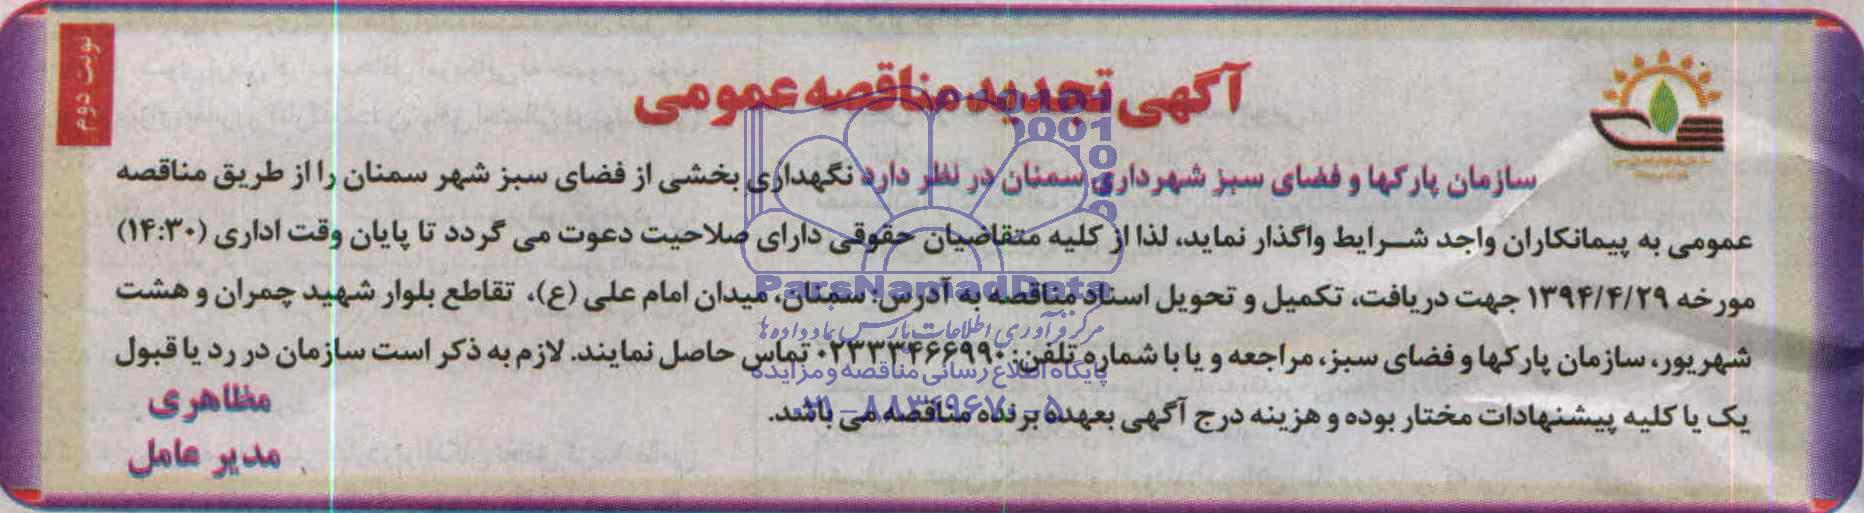 نوبت دوم
آگهی تجدید مناقصه عمومی
سازمان پارکها و فضای سبز شهرداری سمنان در نظر دارد نگهداری بخشی از فضای سبز شهر سمنان را از طریق مناقصه
عمومی به پیمانکاران واجد شرایط واگذار نماید، لذا از کلیه متقاضیان حقوقی دارای صلاحیت دعوت می گردد تا پایان وقت اداری (۱۴:۳۰)
مورخه ۱۳۹۴/۴/۲۹ جهت دریافت، تکمیل و تحویل اسناد مناقصه به آدرس: سمنان، میدان امام علی (ع)، تقاطع بلوار شهید چمران و هشت
شهریور، سازمان پارکها و فضای سبز، مراجعه و یا با شماره تلفن: ۰۲۳۳۳۴۶۶۹۹۰ تماس حاصل نمایند. لازم به ذکر است سازمان در رد یا قبول
یک یا کلیه پیشنهادات مختار بوده و هزینه درج آگهی بعهده برنده مناقصه می باشد.
مظاهری
مدیر عامل
ParsNamadData
مرکز فرآوری اطلاعات پارس نماد داده ها
پایگاه اطلاع رسانی مناقصه و مزایده
۰۲۱-۸۸۳۴۹۶۷۰-۵